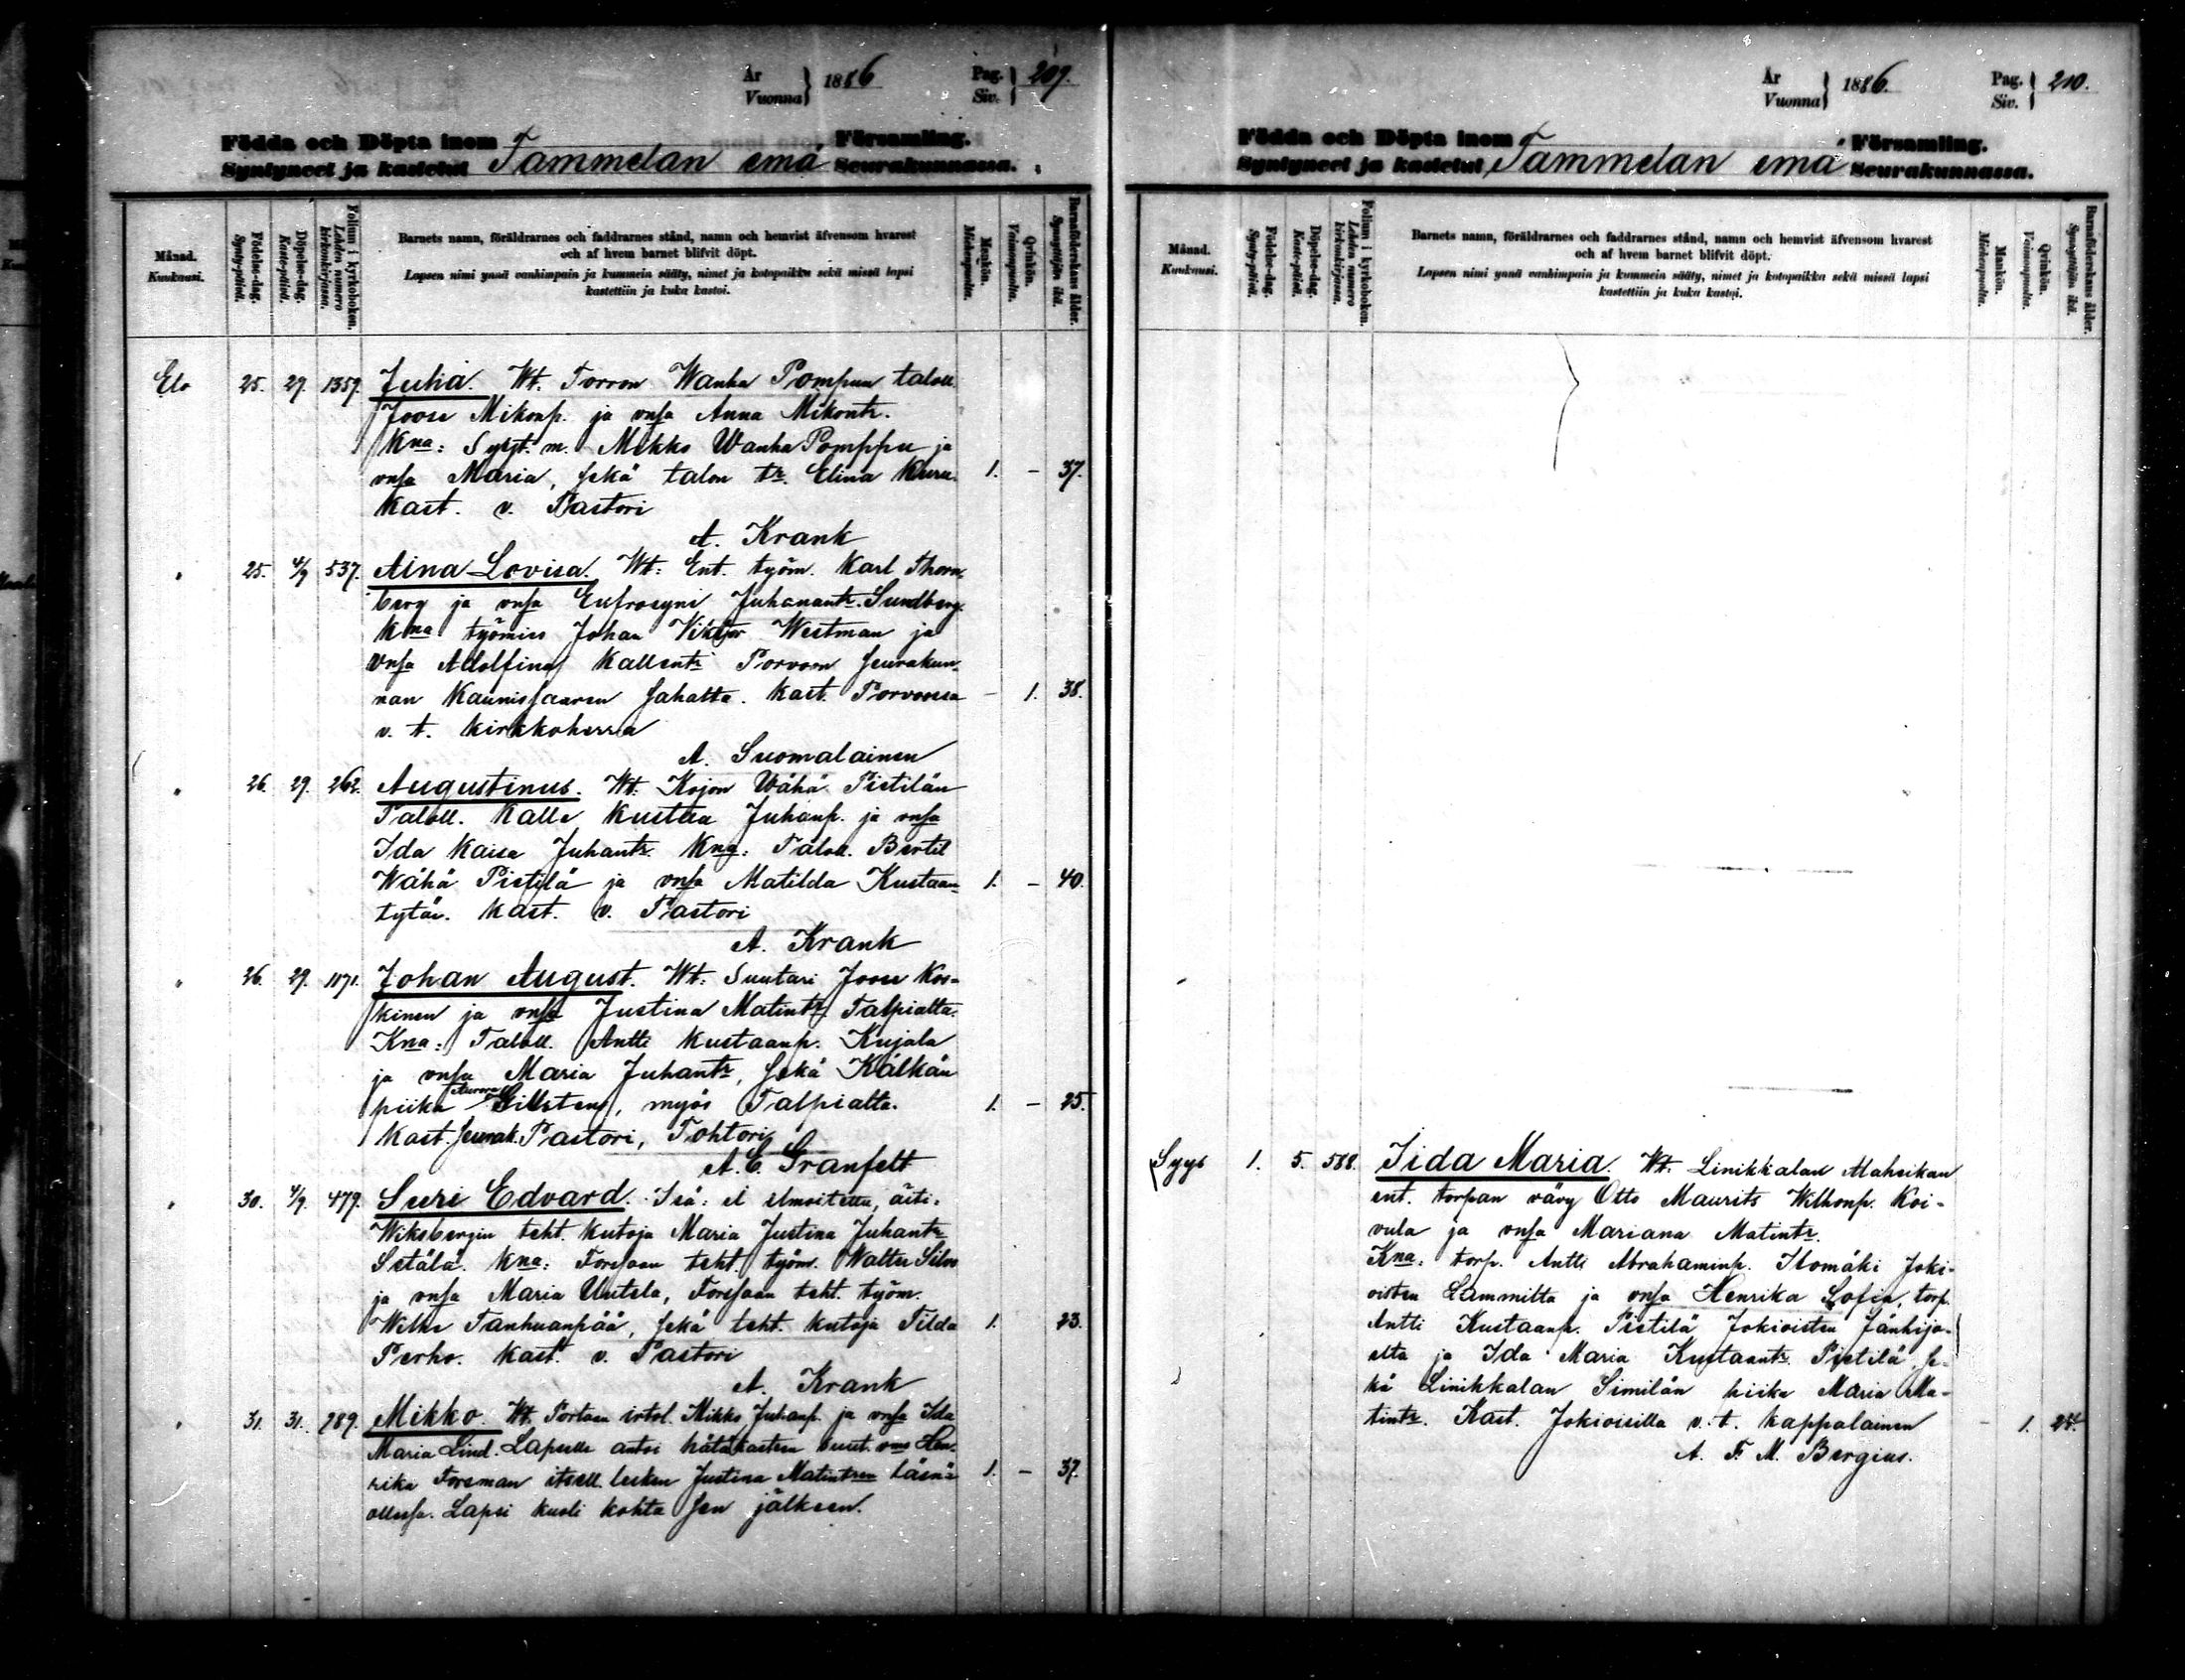 År
Vuonna } 1886
Pag.
Siv. } 209.
Födda och Döpta inom Tammelan emä Församling.
Syntyneet ja kastetut Seurakunnassa.
Månad.
Kuukausi.
Födelse-dag.
Synty-päivä.
Döpelse-dag.
Kaste-päivä.
Folium i kyrkoboken.
Lehden numero kirkonkirjassa.
Barnets namn, föräldrarnes och faddrarnes stånd, namn och hemvist äfvensom hvarest
och af hvem barnet blifvit döpt.
Lapsen nimi ynnä vanhimpain ja kummein sääty, nimet ja kotopaikka sekä missä lapsi
kastettiin ja kuka kastoi.
Mankön.
Miehenpuolta.
Qvinkön.
Vaimonpuolta.
Barnaföderskans ålder.
Synnyttäjän ikä.
Elo 25. 29. 1359. Juhä. Wt. Torron Wanha Pompun taloll.
Joose Mikonp. ja vmsa Anna Mikontr.
Kna: Syyt. m. Mikko Wanha Pomppu ja
vmsa Maria, sekä talon tr. Elina Kuru. 1. – 37.
Kast. v. Pastori
A. Krank
" 25. 4/9 537. Aina Lovisa. Wt: Ent. työm. Karl Thorn-
berg ja vmsa Eufrosyni Juhanantr. Sundberg.
Kna työmies Johan Viktor Westman ja
vmsa Adolfina Kallentr Porvoon seurakun-
nan Kaunissaaren sahalta. Kast. Porvoossa – 1. 38.
v. t. kirkkoherra
A. Suomalainen
" 26. 29. 262. Augustinus. Wt: Kojon Wähä Pietilän
Taloll. Kalle Kustaa Juhanp. ja vmsa
Ida Kaisa Juhantr. Kna: Taloll. Bertil
Wähä Pietilä ja vmsa Matilda Kustaan- 1. – 40.
tytär. Kast. v. Pastori
A. Krank
" 26. 29. 1071. Johan August. Wt: Suutari Joose Kos-
kinen ja vmsa Justina Matintr. Talpialta.
Kna: Taloll. Antti Kustaanp. Kujala
ja vmsa Maria Juhantr, sekä Kälkän
piika Aurora Gillsten, myös Talpialta. 1. – 25.
Kast. seurak. Pastori, Tohtori
A. E. Granfelt
" 30. 4/9. 479. Suri Edvard. Isä: ei ilmoitettu, äiti:
Wiksbergin teht. kutoja Maria Justina Juhantr
Setälä. Kna: Forssan teht. työm. Walter Silvo
ja vmsa Maria Uutela, Forssaan teht. työm.
Wilhe Tanhuanpää, sekä teht. kutoja Tilda 1. 23.
Perho. Kast. v. Pastori
A. Krank
" 31. 31. 789. Mikko. Wt. Portaan irtol. Mikko Juhanp. ja vmsa Ida
Maria Lind. Lapselle antoi hätäkasteen vmo Hen-
rika Forsman itsell. lesken Justina Matintren läsnä 1. – 37.
ollessa. Lapsi kuoli kohta sen jälkeen.
År
Vuonna } 1886.
Pag.
Siv. } 210.
Födda och Döpta inom Tammelan emä Församling.
Syntyneet ja kastetut Seurakunnassa.
Månad.
Kuukausi.
Födelse-dag.
Synty-päivä.
Döpelse-dag.
Kaste-päivä.
Folium i kyrkoboken.
Lehden numero kirkonkirjassa.
Barnets namn, föräldrarnes och faddrarnes stånd, namn och hemvist äfvensom hvarest
och af hvem barnet blifvit döpt.
Lapsen nimi ynnä vanhimpain ja kummein sääty, nimet ja kotopaikka sekä missä lapsi
kastettiin ja kuka kastoi.
Mankön.
Miehenpuolta.
Qvinkön.
Vaimonpuolta.
Barnaföderskans ålder.
Synnyttäjän ikä.
Syys 1. 5. 588. Iida Maria. Wt. Linikkalan Mahnikan
ent. torpan vävy Otto Maurits Wilhonp. Koi-
vula ja vmsa Mariana Matintr.
Kna: torp. Antti Abrahaminp. Ilomäki Joki-
oisten Lammilta ja vmsa Henrika Sofia, torp.
Antti Kustaanp. Pietilä Jokioisten Jänhijo-
elta ja Ida Maria Kustaantr. Pietilä se-
kä Linikkalan Similän piika Maria Ma-
tintr. Kast. Jokioisilla v. t. kappalainen – 1.
A. F. M. Bergius.